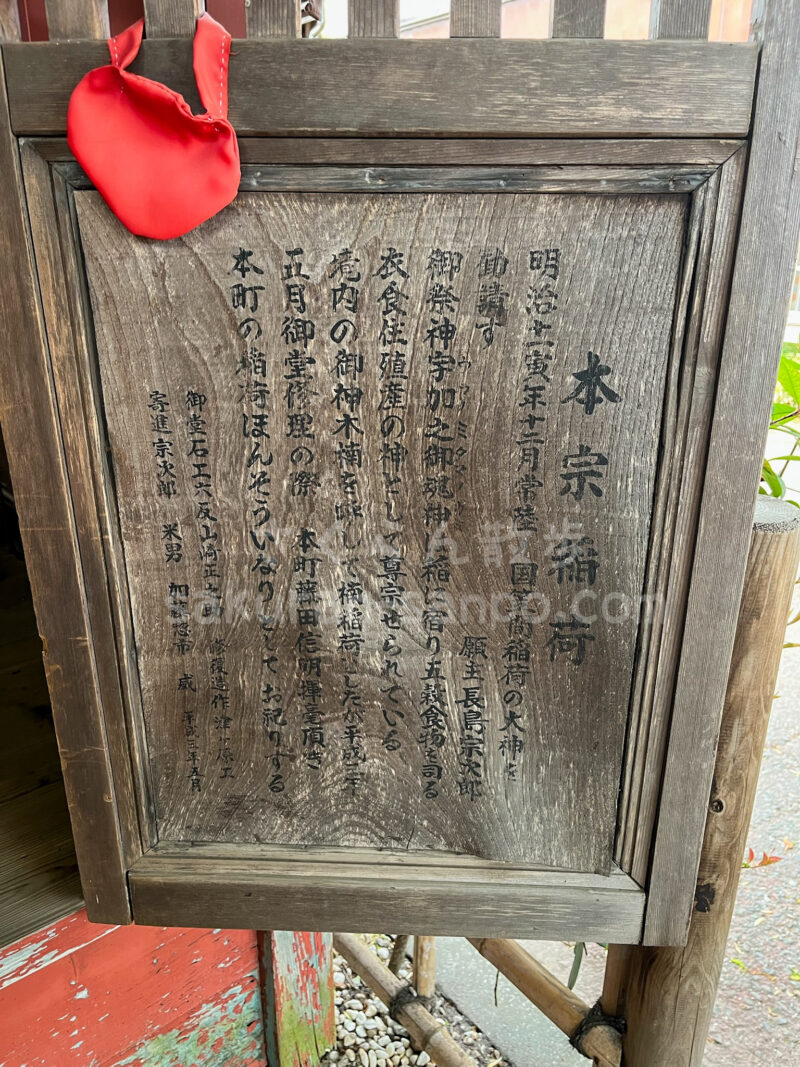 本宗稲荷
明治十一寅年十二月常陸 国笠間稲荷の大神を
勧請す 願主長島宗次郎
御祭神宇加之御魂神は稲に宿り五穀食物を司る
衣食住殖産の神として尊宗せられている
内の御神木楠を して楠稲荷でしたが平成三年
五月御堂修理の際 本町藤田信明揮毫頂き
本町の稲荷ほんそういなりとしてお祀りする
御堂石工六反山崎正之 修復造作
寄進宗次郎 米男 威 平成三年五月
散歩